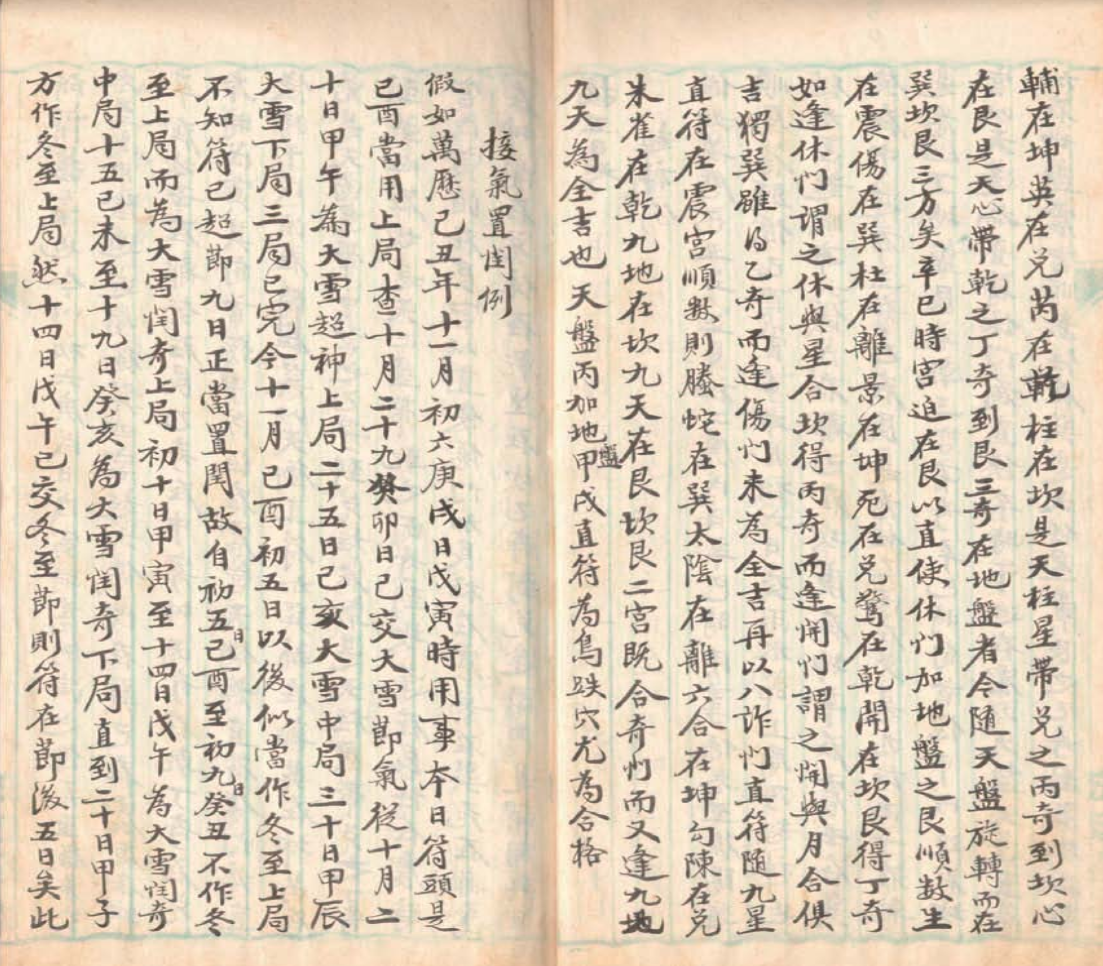 輔在坤英在兌芮在乾柱在坎是天柱星帶兌之丙奇到坎心
在艮是天心帶乾之丁奇到艮三奇在地盤者今隨天盤旋轉而在
巽坎艮三方矣辛巳時宮迫在艮以直使休门加地盤之艮順数生
在震傷在巽杜在離景在坤死在兌驚在乾開在坎艮得丁奇
如逢休门謂之休與星合坎得丙奇而逢開门謂之開與月合俱
吉獨巽雖得乙奇而逢傷门未為全吉再以八詐门直符隨九星
直符在震宮順数則螣蛇在巽太陰在離六合在坤勾陳在兌
朱雀在乾九地在坎九天在艮坎艮二宮既合奇门而又逢九地
九天為全吉也天盤丙加地盤甲戌直符為鳥跌穴尤為合格
接氣置閏例
假如萬歷己丑年十一月初六庚戌日戊寅時用事夲日符頭是
己酉當用上局查十月二十九癸卯日已交大雪節氣從十月二
十日甲午為大雪超神上局二十五日己亥大雪中局三十日甲辰
大雪下局三局已完今十一月己酉初五日以後似當作冬至上局
不知符已超節九日正當置閏故自初五日己酉至初九日癸丑不作冬
至上局而為大雪閏奇上局初十日甲寅至十四日戊午為大雪閏奇
中局十五己未至十九日癸亥為大雪閏奇下局直到二十日甲子
方作冬至上局然十四日戊午已交冬至節則符在節後五日矣此